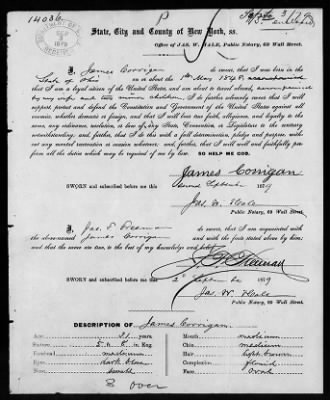 14036
State, City and County of New York, ss.
Office of JAS. W. HALE, Public Notary, 69 Wall Street.
I, James Corrigan do swear, that I was born in the
State of Ohio on or about the 1st May 1848,
that I am a loyal citizen of the United States, and am about to travel abroad, accompanied
by my wife and two minor children. I do further solemnly swear that I will
support, protect and defend the Constitution and Government of the United States against all
enemies, whether domestic or foreign, and that I will bear true faith, allegiance and loyalty to
the same, any ordinance, resolution or law of any State, Convention, or Legislature to the contrary
notwithstanding, and further, that I do this with a full determination, pledge and purpose, without
any mental reservation or evasion whatever; and, further, that I will well and faithfully perform
all the duties which may be required of me by law. SO HELP ME GOD.
James Corrigan
SWORN and subscribed before me this second September 1879
Jas. W. Hale
Public Notary, 69 Wall Street.
I, Jas. T. Freeman do swear, that I am acquainted with
the above-named James Corrigan and with the facts stated above by him;
and that the same are true, to the best of my knowledge and belief.
J. T. Freeman
SWORN and subscribed before me this 2d September 1879
Jas. W. Hale
Public Notary, 69 Wall Street.
DESCRIPTION OF James Corrigan
Age 31 years. Mouth medium
Stature 5 ft 6 in. Eng. Chin medium
Forehead medium Hair light brown
Eyes dark blue Complexion florid
Nose small Face oval
over